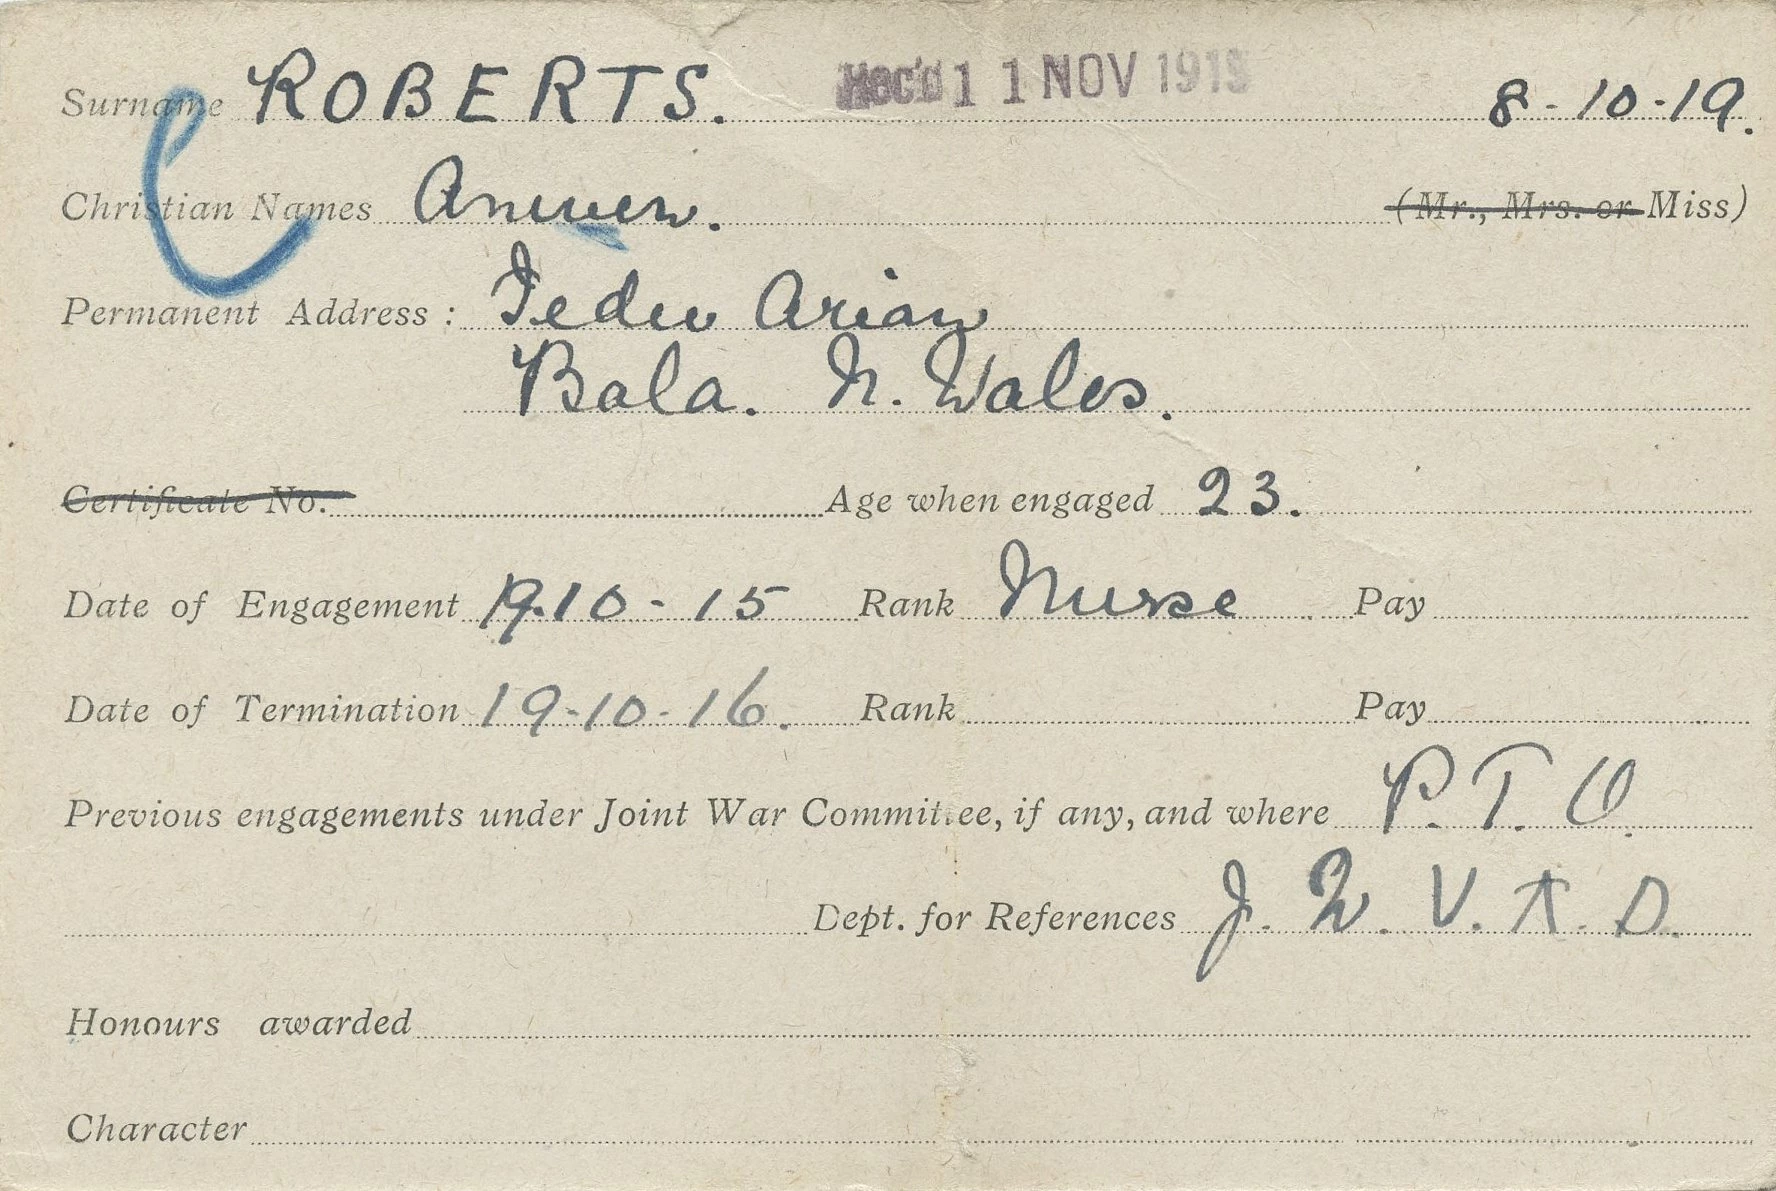 Surname ROBERTS. Rec'd 11 NOV 1919 8-10-19.
Christian Names Anwen. (Mr., Mrs. or Miss)
Permanent Address: Fedw Arian
Bala. N. Wales.
Certificate No. Age when engaged 23.
Date of Engagement 19.10-15 Rank Nurse Pay
Date of Termination 19-10-16. Rank Pay
Previous engagements under Joint War Committee, if any, and where P.T.O.
Dept. for References J. W. V. A. D.
Honours awarded
Character